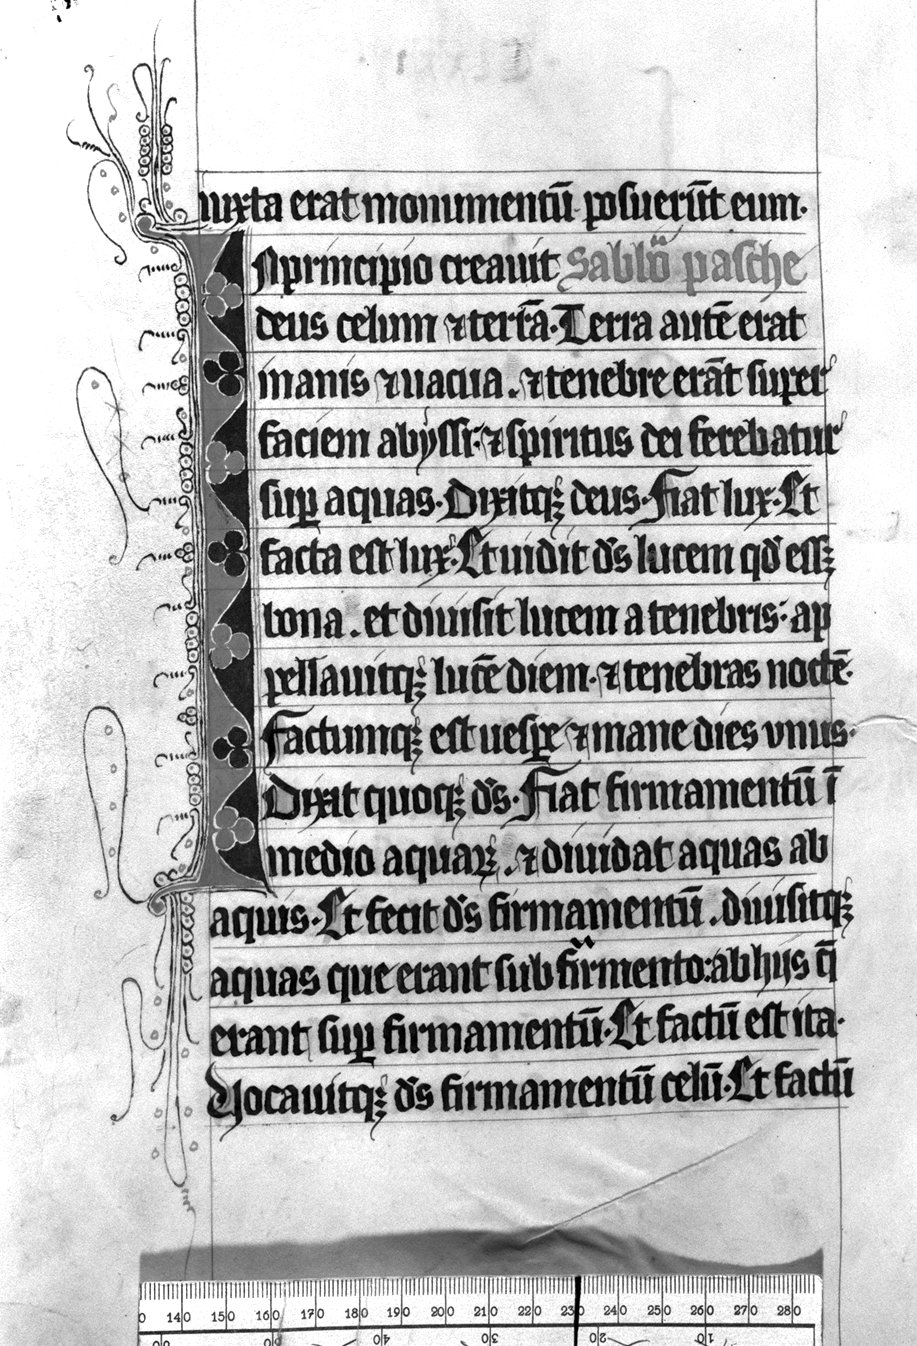 iuxta erat monumentū posuerūt eum.
INprincipio creauit Sabb̄o pasche
deus celum ⁊ terrā. Terra autē erat
inanis ⁊ uacua. ⁊ tenebre erāt super
faciem abyssi: ⁊ spiritus dei ferebatur
suꝑ aquas. Dixitqꝫ deus. Fiat lux. Et
facta est lux. Et uidit d̄s lucem qd̓ essꝫ
bona. et diuisit lucem a tenebris: ap
pellauitqꝫ lucē diem. ⁊ tenebras noctē.
Factumqꝫ est uesꝑe ⁊ mane dies vnus.
Dixit quoqꝫ d̄s. Fiat firmamentū ī
medio aquaꝝ. ⁊ diuidat aquas ab
aquis. Et fecit d̄s firmamentū. diuisitqꝫ
aquas que erant sub firmento: ab hijs q̄
erant suꝑ firmamentū. Et factū est ita.
Vocauitqꝫ d̄s firmamentū celū. Et factū
0 140 150 160 170 180 190 200 210 220 230 240 250 260 270 280